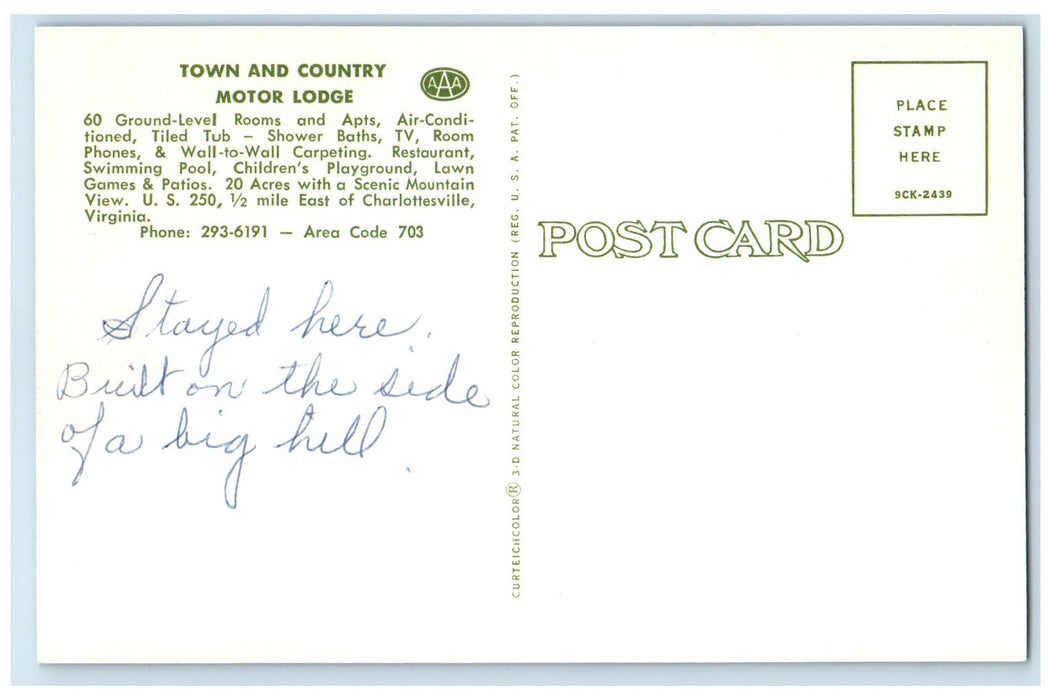 TOWN AND COUNTRY
MOTOR LODGE
AAA
60 Ground-Level Rooms and Apts, Air-Condi-
tioned, Tiled Tub – Shower Baths, TV, Room
Phones, & Wall-to-Wall Carpeting. Restaurant,
Swimming Pool, Children's Playground, Lawn
Games & Patios. 20 Acres with a Scenic Mountain
View. U. S. 250, ½ mile East of Charlottesville,
Virginia.
Phone: 293-6191 — Area Code 703
Stayed here.
Built on the side
of a big hill.
CURTEICHCOLOR® 3-D NATURAL COLOR REPRODUCTION (REG. U. S. A. PAT. OFF.)
POST CARD
PLACE
STAMP
HERE
9CK-2439